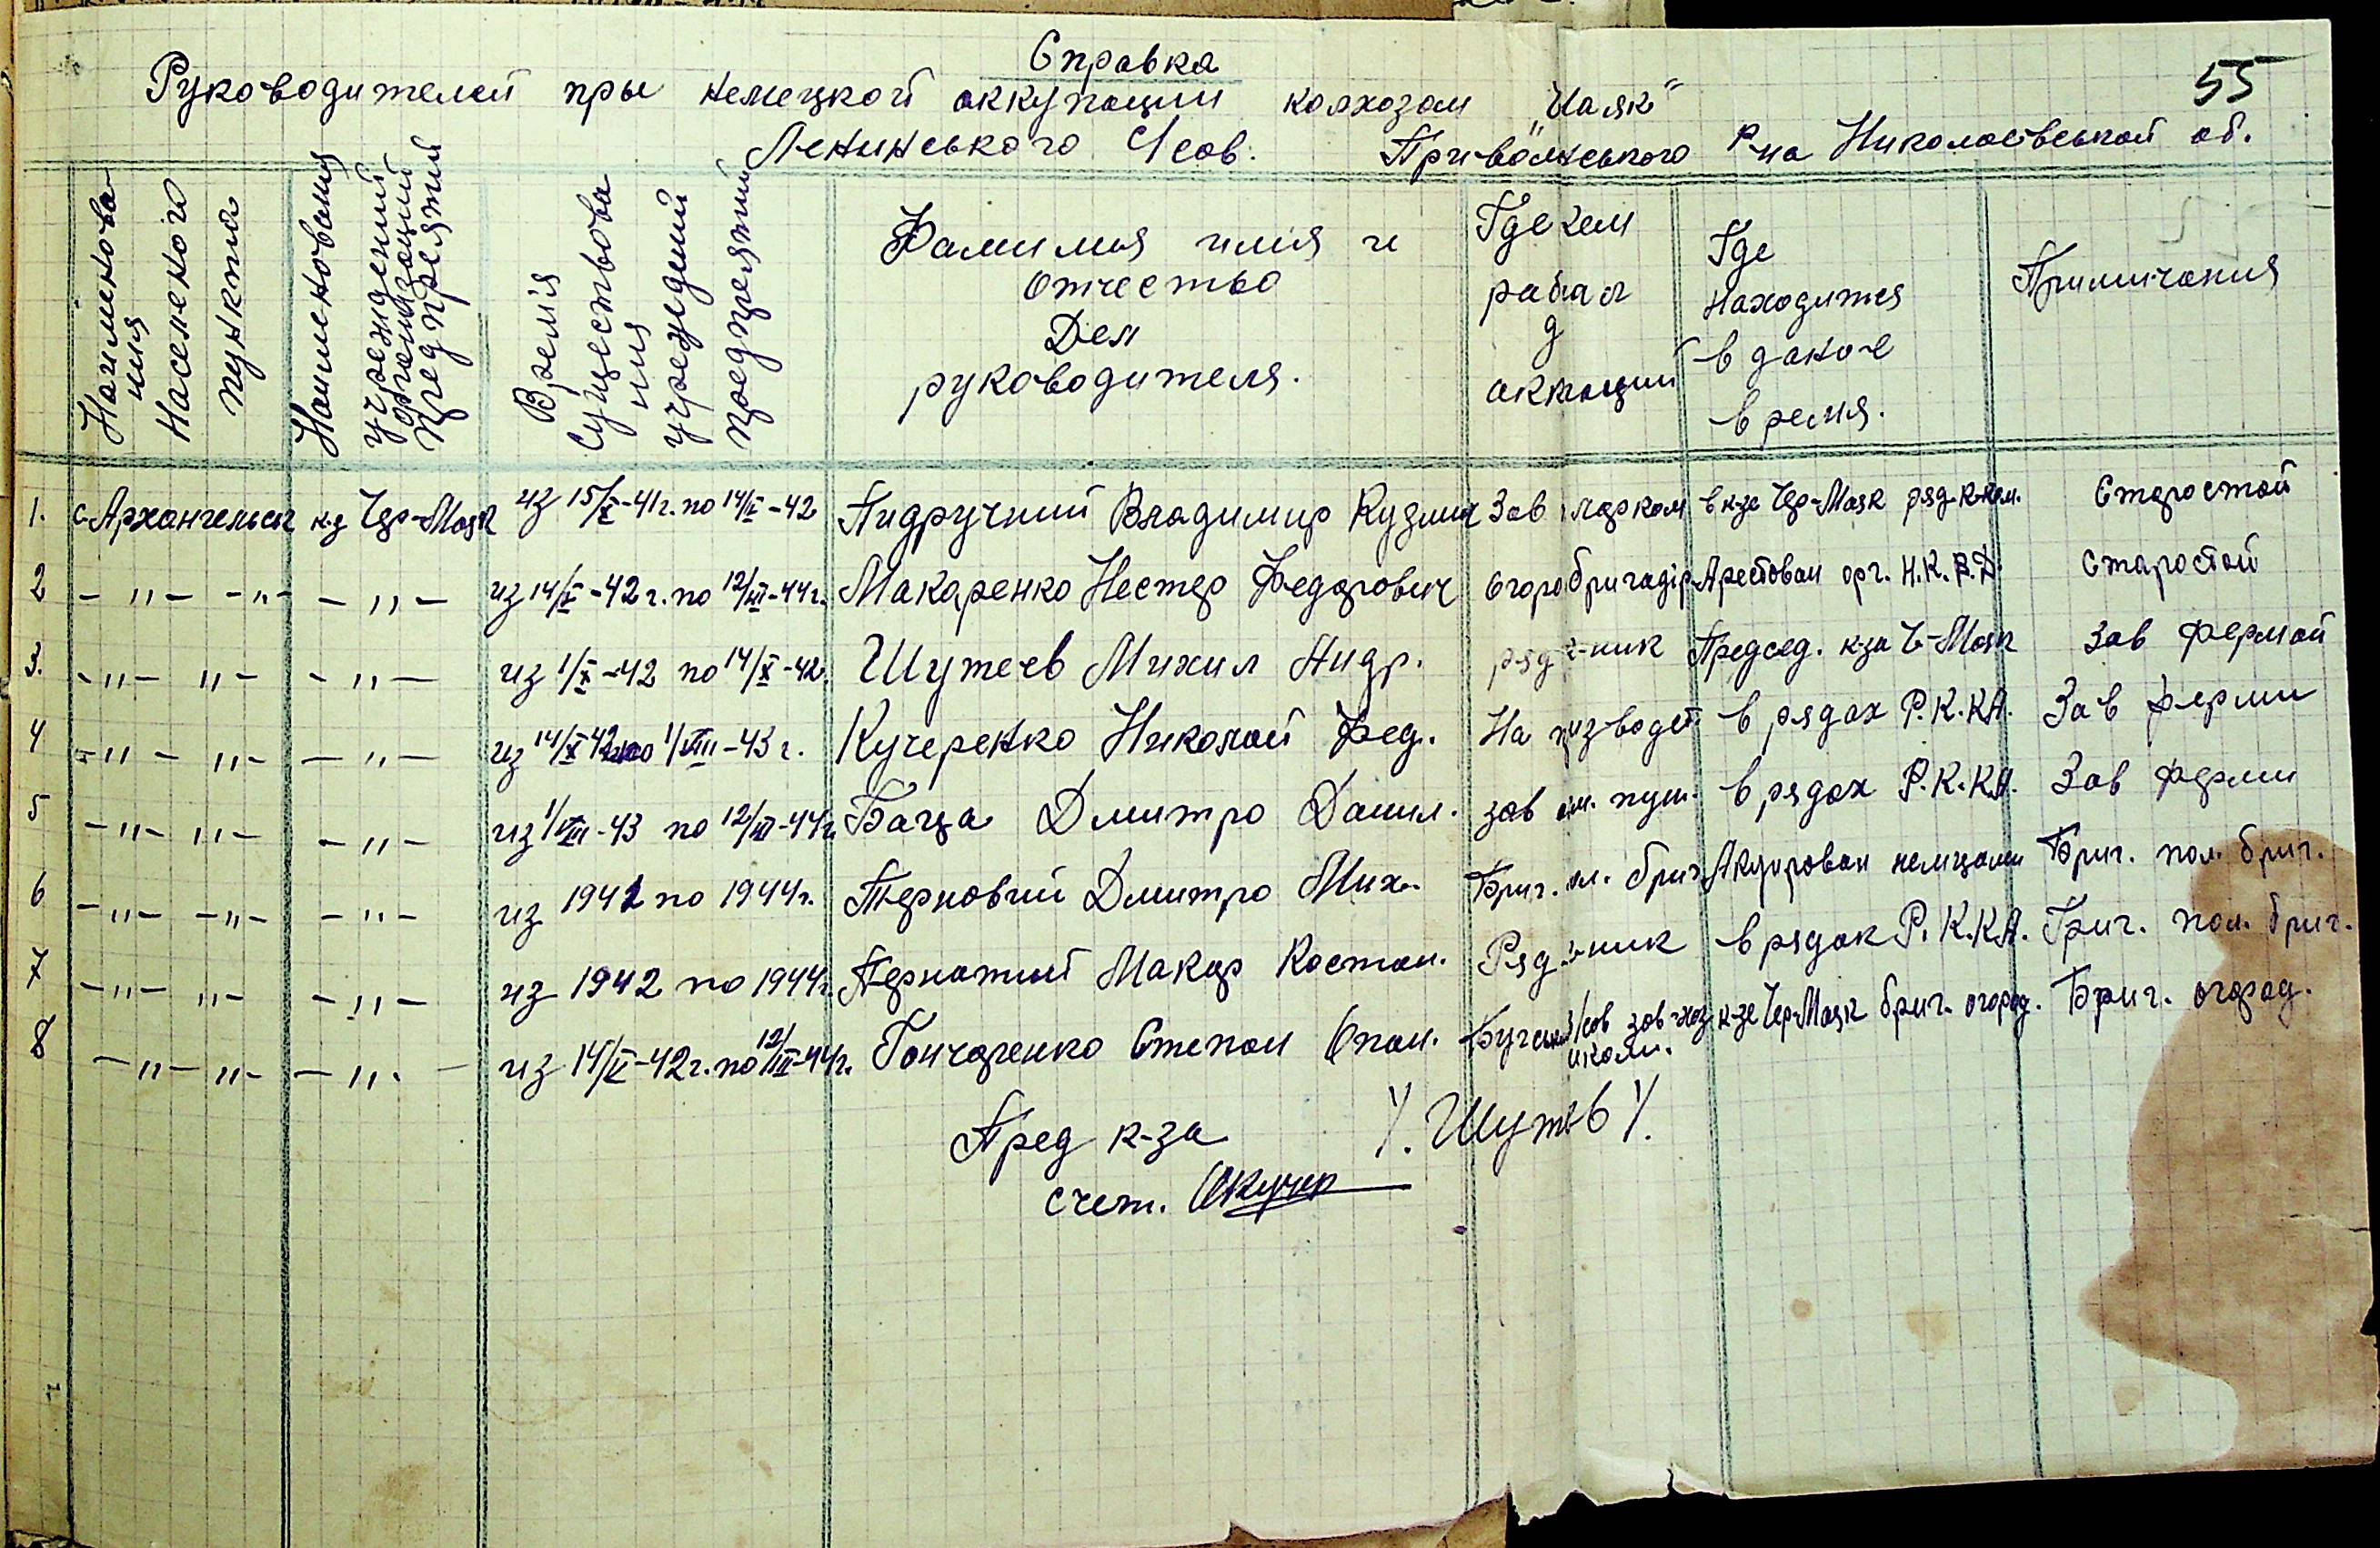 55
Справка
Руководителей пры немецкой аккупации колхозом „Маяк"
Ленинського С/сов. Привольнського р-на Николаевськой об.
Наименова-
ния
Населеного
пункта
Наименования
учреждений
организаций
предпреятий
Времія
Существова
ния
учреждений
предпреятий
Фамилия имия и
Отчество
Дел
руководителя.
Где кем
работал
д
аккпации
Где
находится
в даное
время.
Примичания
1. с Архангельск к-з Чер-Маяк из 15/X-41г. по 14/V-42 Пидручний Владимир Кузмич Зав ларком в к-зе Чер-Маяк ряд. к-ком. Старостой
2 -"- -"- -"- из 14/V-42г. по 12/III-44г. Макаренко Нестер Федорович Огоро бригадір Арестован орг. Н.К.В.Д. Старостой
3. -"- "- -"- из 1/X-42 по 14/X-42. Шутеев Михил Андр. ряд-ник Председ. к-за Ч-Маяк Зав фермой
4 -"- "- -"- из 14/X-42 по 1/VIII-43г. Кучеренко Николай Фед. На в рядах Р.К.К.А. Зав ферми
5 -"- "- -"- из 1/VIII-43 по 12/III-44г. Баца Дмитро Данил. зав в рядах Р.К.К.А. Зав ферми
6 -"- -"- -"- из 1942 по 1944г. Терновий Дмитро Мих. Бриг. бриг немцами Бриг. пол. бриг.
7 -"- "- -"- из 1942 по 1944г. Пернатий Макар Костан. Ряд ник в рядак Р.К.К.А. Бриг. пол. бриг.
8 -"- "- -"- из 14/V-42г. по 12/III-44г. Гончаренко Степан Опан. С/сов зав-хоз школи. к-зе Чер-Маяк бриг. огород. Бриг. огород.
Пред к-за /. Шутев /.
счет.